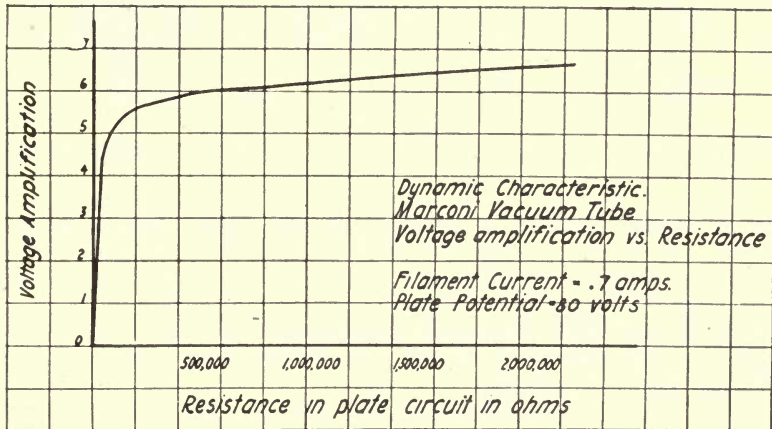 7
6
5
4
3
2
1
0
Voltage Amplification
Dynamic Characteristic.
Marconi Vacuum Tube
Voltage amplification vs. Resistance
Filament Current = .7 amps.
Plate Potential = 80 volts
500,000
1,000,000
1,500,000
2,000,000
Resistance in plate circuit in ohms